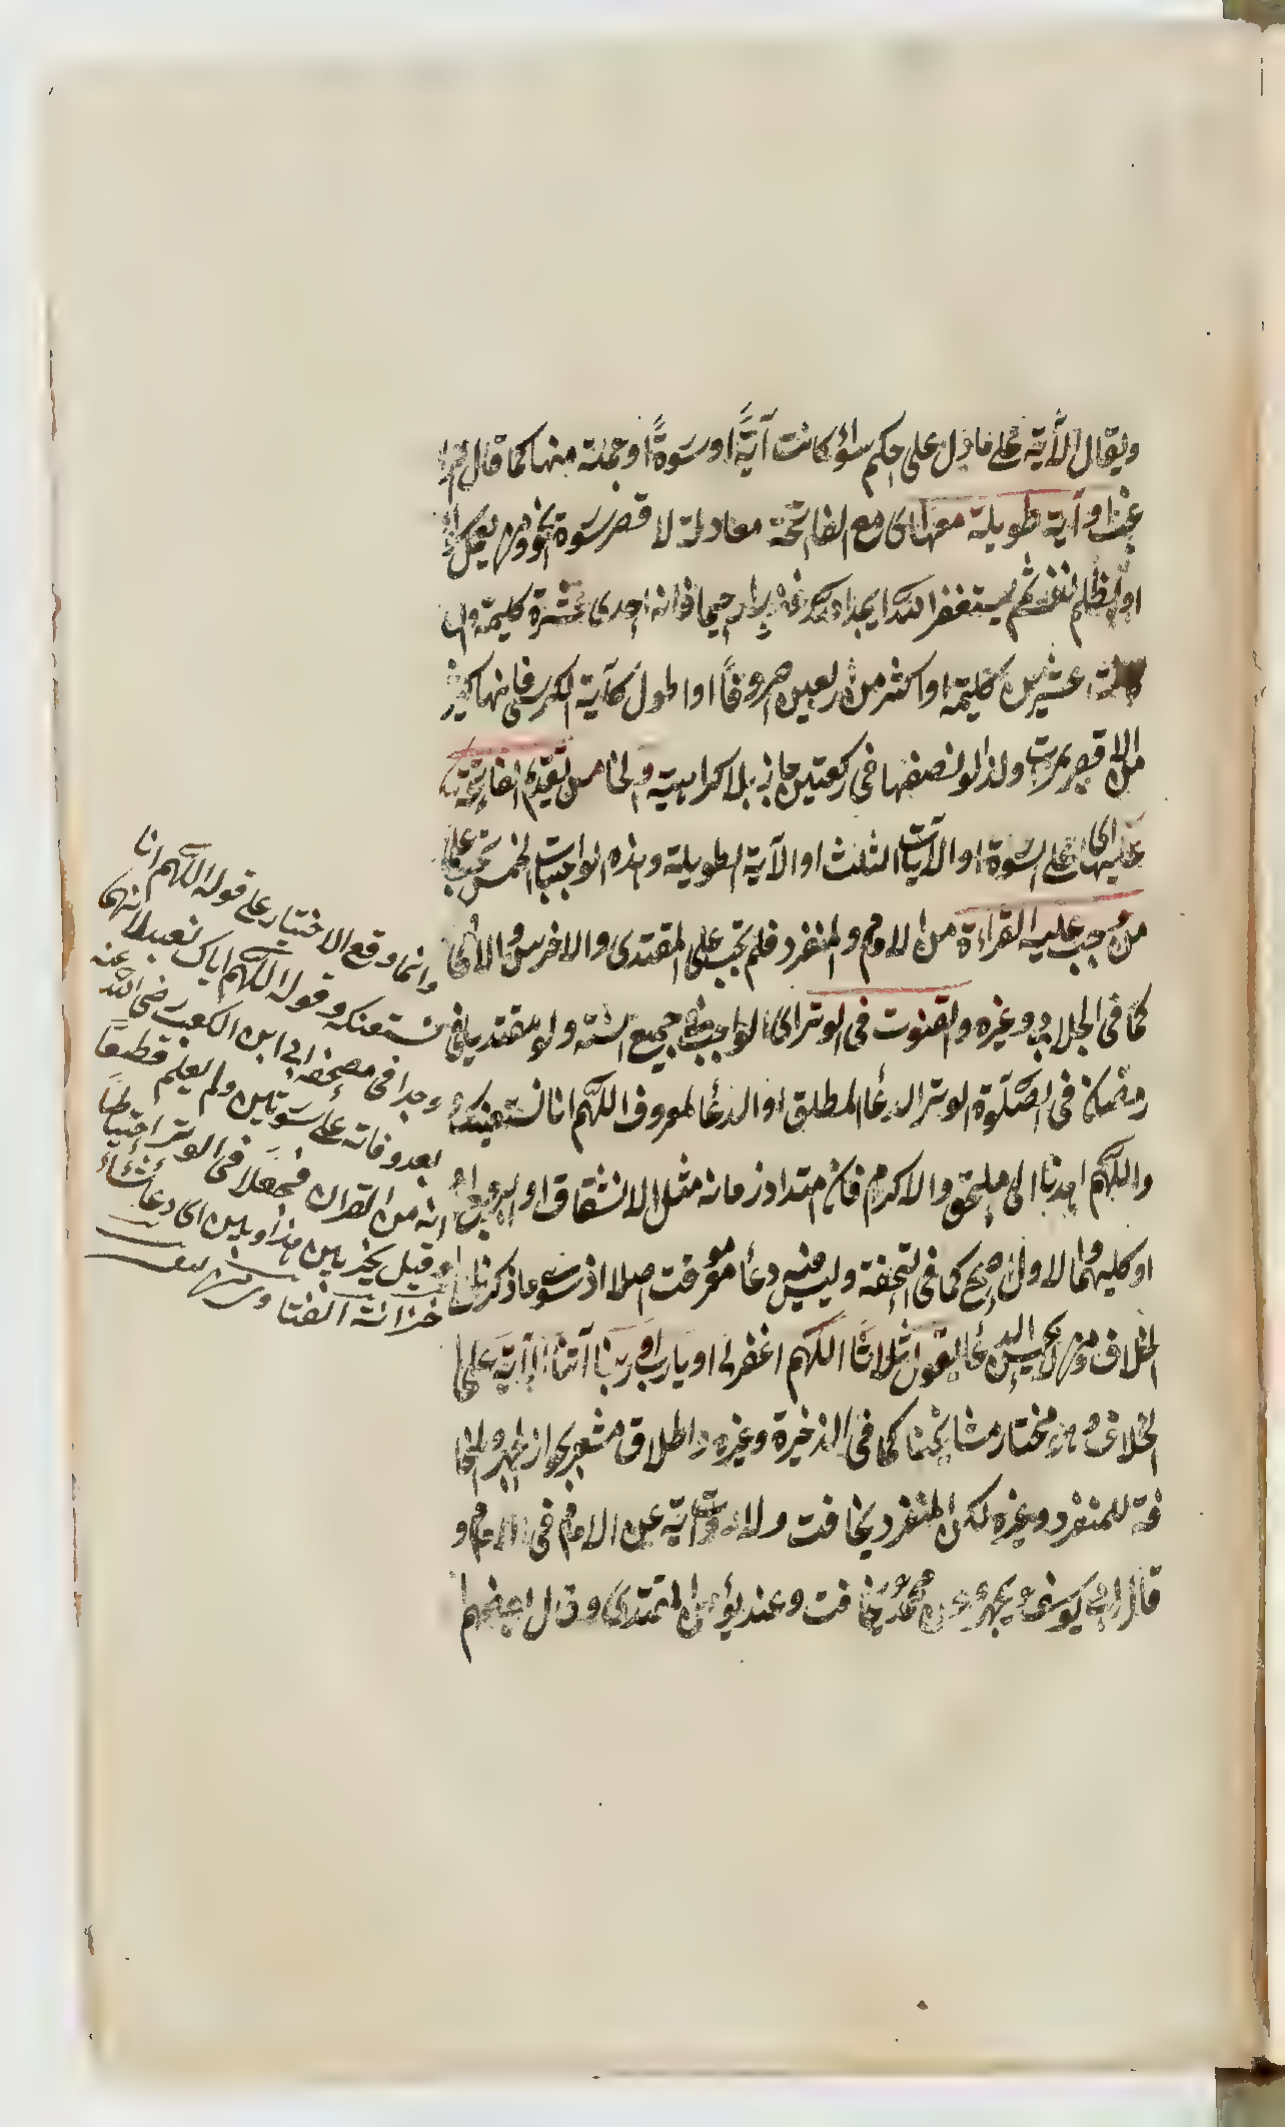 ويقال الآية على ما دل على حكم سواء كانت آيةً او سورةً او جملة منها كما قال
او آية طويلة معها اى مع الفاتحة معادلة لا قصر سورة نحو ومن يعمل سوأ
او يظلم نفسه ثم يستغفر الله يجد الله غفورا رحيما فانه احدى عشرة كليمة
عشرين كليمة او اكثر من اربعين حروفاً او اطول كآية الكرسى فانها اكثر
ولذا لو نصفها فى ركعتين جاز بلا كراهية والخامس تقديم الفاتحة
عليها اى على السورة او الآيات الثلث او الآية الطويلة وهذه الواجبات الخمس تجب على
من وجب عليه القراءة من الامام والمنفرد فلم تجب على المقتدى والاخرس والامى
كما فى الجلابى وغيره والقنوت فى الوتر اى الواجب فى جميع السنة ولو مقتديا فى
رمضان فى الصلوة الوتر الدعا المطلق او الدعا المعروف اللهم انا نستعينك
واللهم اهدنا الى ملحق والاكرم فان امتداد زمانه مثل الانشقاق او البروج
او كليهما والاول اصح كما فى التحفة وليس فيه دعأ موقت اصلا اذ سوى ما ذكرنا
الخلاف ومن لا يحسن الدعا يقول ثلاثا اللهم اغفر لى او يا رب او ربنا آتنا الآية على
الخلاف وهو مختار مشايخنا كما فى الذخيرة وغيره واطلاقه مشعر بجواز الجهر والمخا
فتة للمنفرد وغيره لكن المنفرد يخافت ولا رواية عن الامام فى الامام و
قال ابى يوسف يجهر وعن محمد يخافت وعنه يؤمن المقتدى وقال بعضهم
وانما وقع الاختيار على قوله اللهم انا
نستعينك وقوله اللهم اياك نعبد لانهما
وجدا فى مصحف ابى ابن الكعب رضى الله عنه
بعد وفاته على سورتين ولم يعلم قطعاً
انه من القران فجعلا فى الوتر احتياطاً
وقيل يخير بين هذا وبين اى دعا شأ
خزانة الفتا